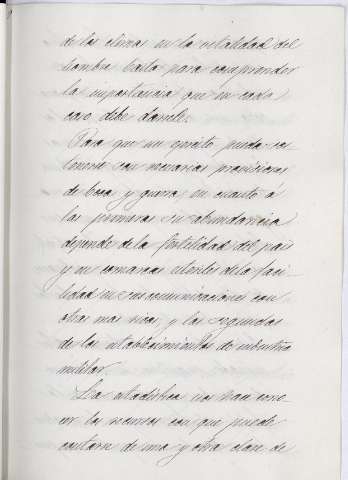 de los climas en la vitalidad del
hombre basta para comprender
la importancia que en cada
caso debe darsele.
Para que un ejército pueda sos
tenerse son necesarias provisiones
de boca y guerra, en cuanto á
las primeras su abundancia
depende de la fertilidad del pais
y en comarcas estériles de la faci
lidad en sus comunicaciones con
otras mas ricas, y las segundas
de los establecimientos de industria
militar.
La estadística nos hará cono
cer los recursos con que puede
contarse de una y otra clase de